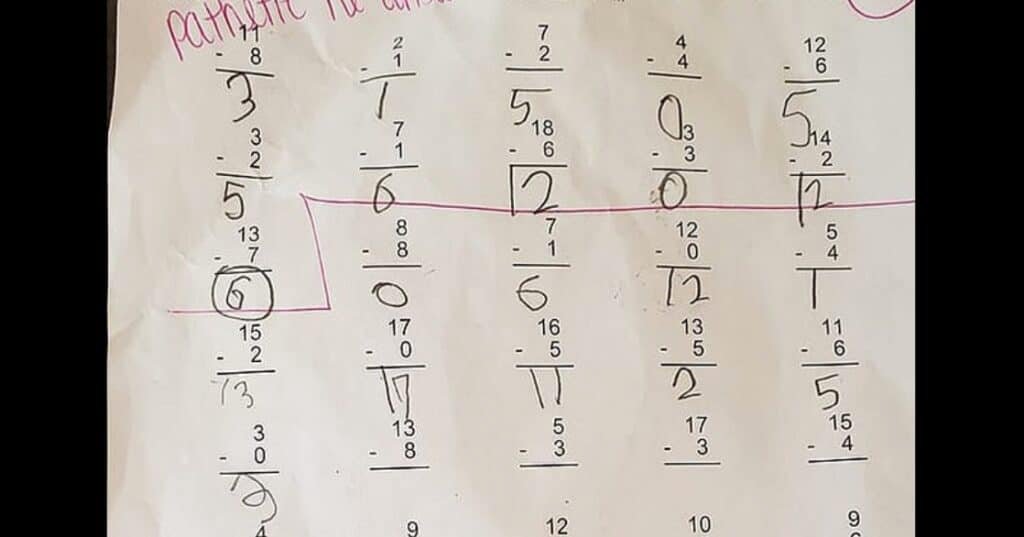 pathetic
11 2 7 4 12
- 8 - 1 - 2 - 4 - 6
3 1 5 0 5
3 7 18 3 14
- 2 - 1 - 6 - 3 - 2
5 6 12 0 12
13 8 7 12 5
- 7 - 8 - 1 - 0 - 4
6 0 6 12 1
15 17 16 13 11
- 2 - 0 - 5 - 5 - 6
13 17 11 2 5
3 13 5 17 15
- 0 - 8 - 3 - 3 - 4
4 9 12 10 9